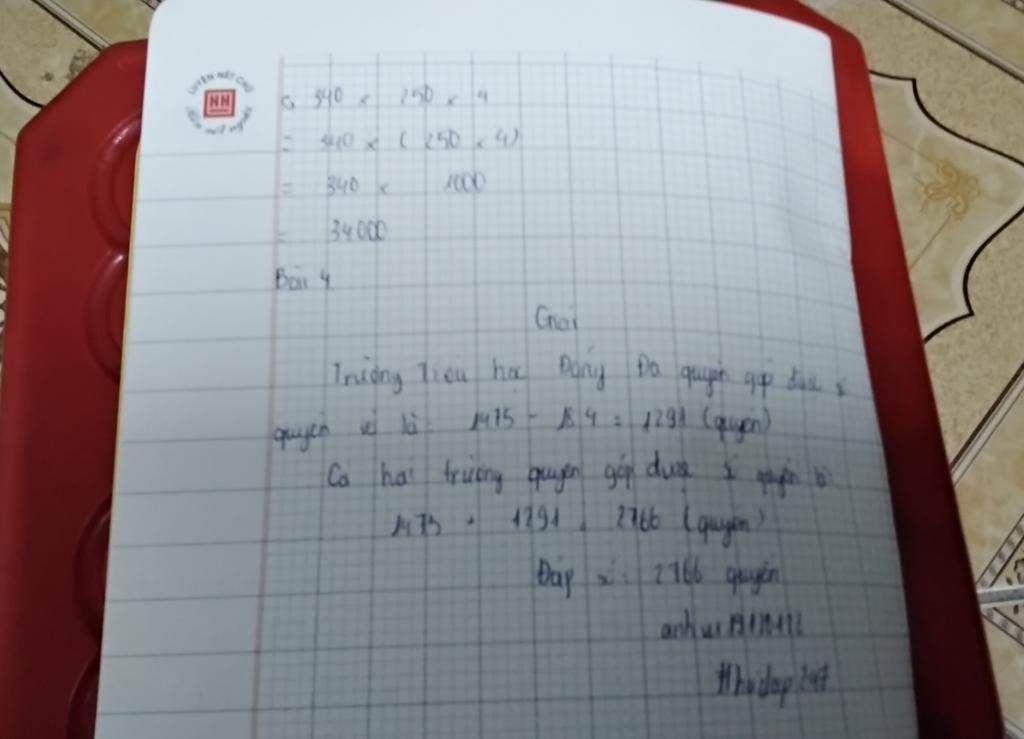 LUYỆN NÉT CHỮ
NN
c, 340 x 250 x 4
= 340 x ( 250 x 4)
= 340 x 1000
= 34000
Bài 4
Giải
Trường Tiểu học Đống Đa quyên góp được số
quyển vở là: 1475 - 184 = 1291 (quyển)
Cả hai trường quyên góp được số quyển là
1475 + 1291 = 2766 (quyển)
Đáp số: 2766 quyển
#hoidap247